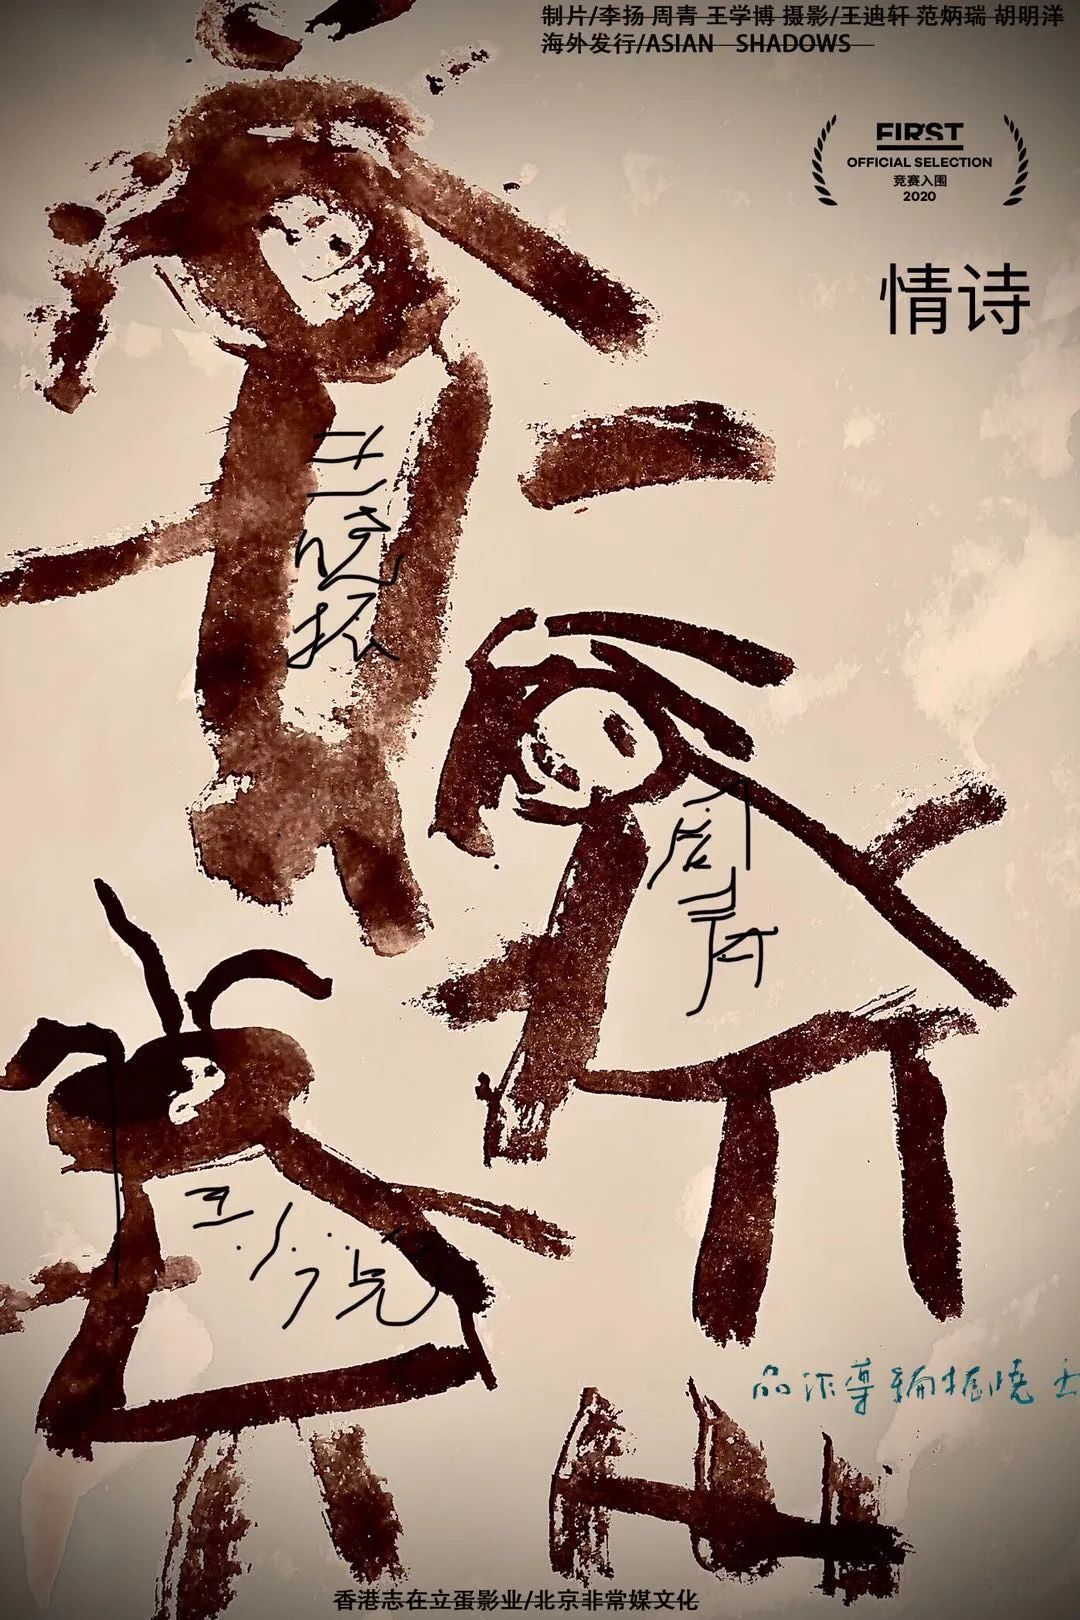 制片/李扬 周青 王学博 摄影/王迪轩 范炳瑞 胡明洋
海外发行/ASIAN SHADOWS
FIRST
OFFICIAL SELECTION
竞赛入围
2020
情诗
王晓振
周青
王小
品作导编振曉王
香港志在立蛋影业/北京非常媒文化